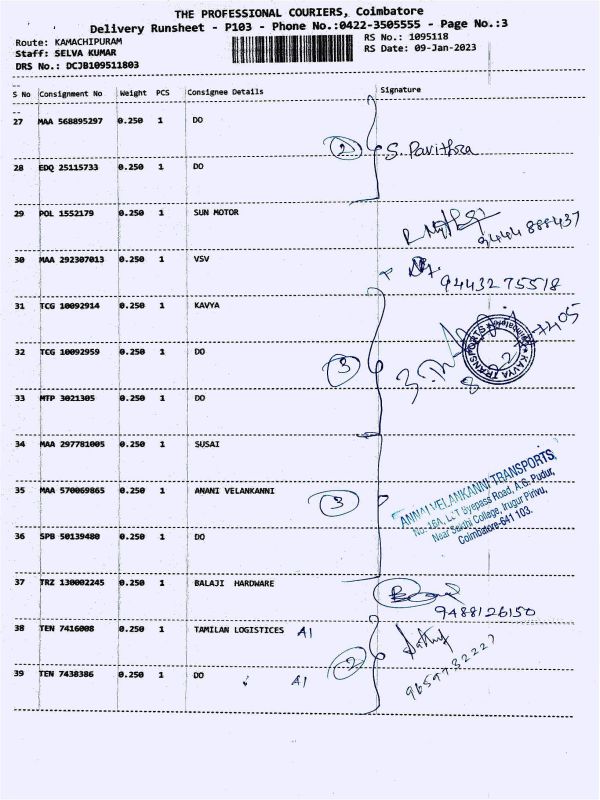 THE PROFESSIONAL COURIERS, Coimbatore
Delivery Runsheet - P103 - Phone No.:0422-3505555 - Page No.:3
Route: KAMACHIPURAM RS No.: 1095118
Staff: SELVA KUMAR RS Date: 09-Jan-2023
DRS No.: DCJB109511803
S No Consignment No Weight PCS Consignee Details Signature
27 MAA 568895297 0.250 1 DO
2 S. Pavithra
28 EDQ 25115733 0.250 1 DO
29 POL 1552179 0.250 1 SUN MOTOR
9444888437
30 MAA 292307013 0.250 1 VSV
9443275518
31 TCG 10092914 0.250 1 KAVYA
KAVYA TRANSPORTS
32 TCG 10092959 0.250 1 DO
3
33 MTP 3021305 0.250 1 DO
34 MAA 297781005 0.250 1 SUSAI
35 MAA 570069865 0.250 1 ANANI VELANKANNI
3
ANNAI VELANKANNI TRANSPORTS
No. 16A, L&T Byepass Road, A.G. Pudur,
Near Sakthi College, Irugur Pirivu,
Coimbatore-641 103.
36 SPB 50139480 0.250 1 DO
37 TRZ 130002245 0.250 1 BALAJI HARDWARE
9488126150
38 TEN 7416008 0.250 1 TAMILAN LOGISTICES A1
2
39 TEN 7438386 0.250 1 DO A1